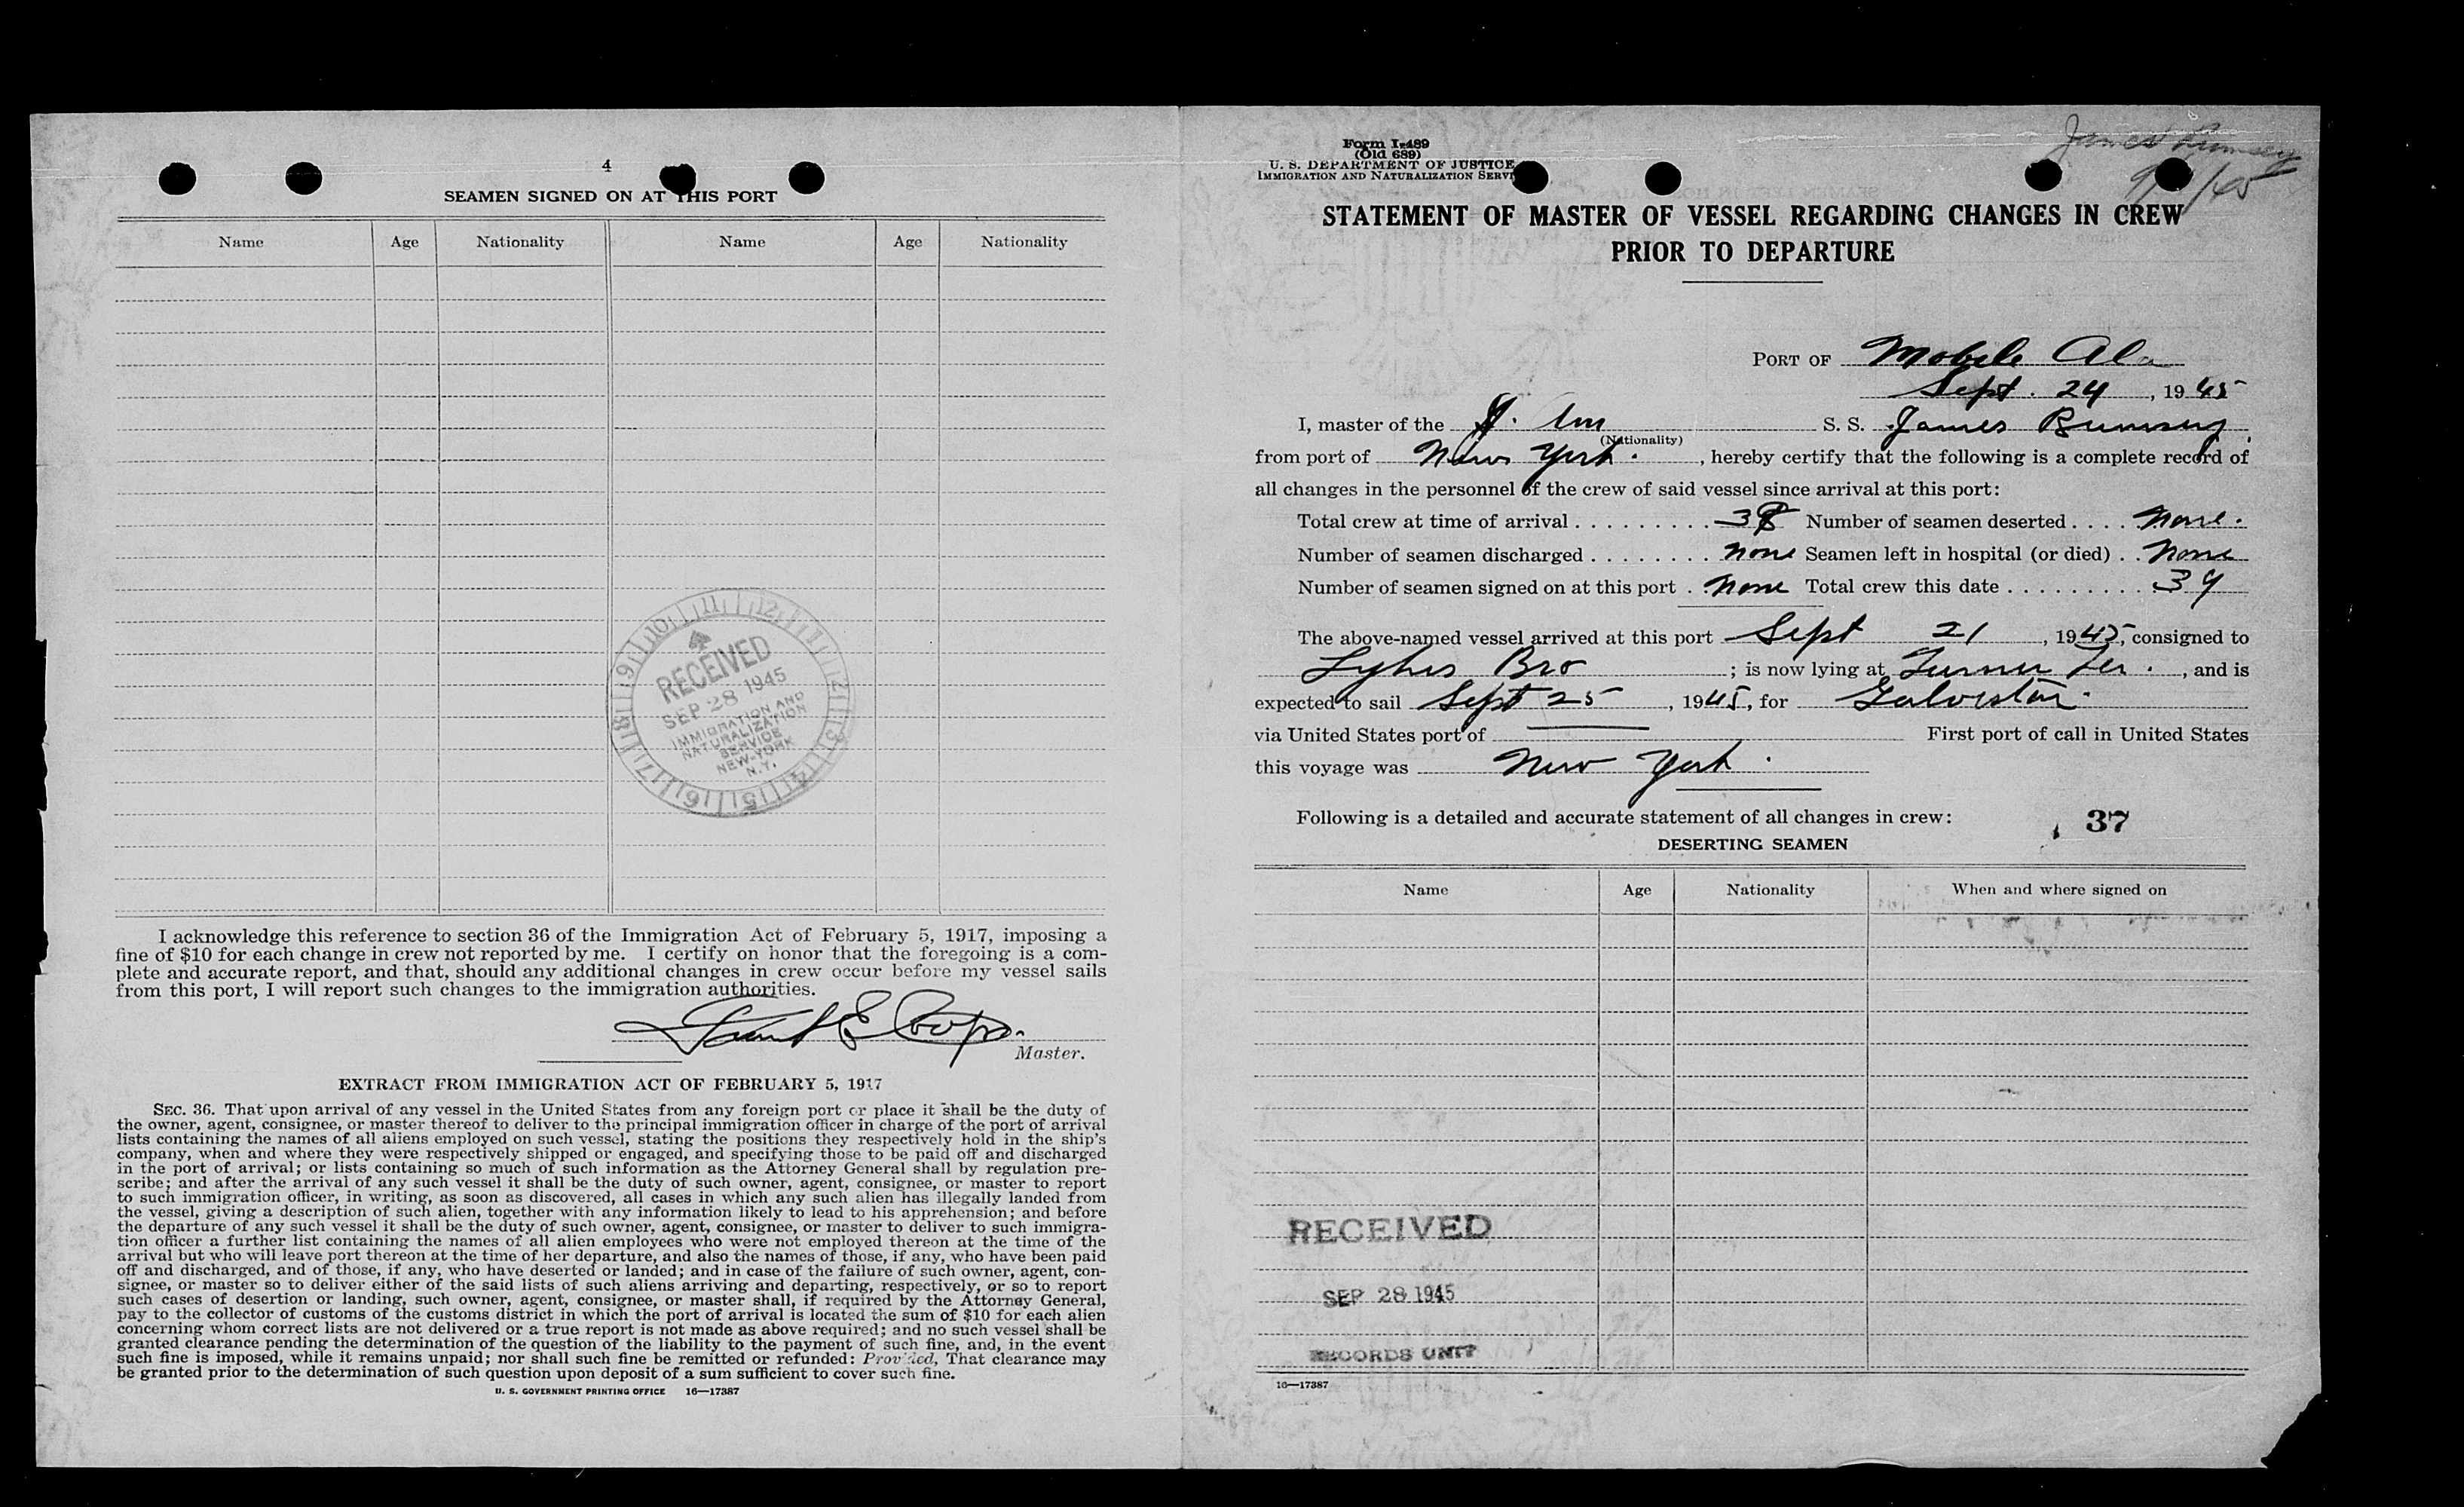 4
SEAMEN SIGNED ON AT THIS PORT
Name Age Nationality Name Age Nationality
RECEIVED
SEP 28 1945
IMMIGRATION AND
NATURALIZATION
SERVICE
NEW YORK
N.Y.
I acknowledge this reference to section 36 of the Immigration Act of February 5, 1917, imposing a
fine of $10 for each change in crew not reported by me. I certify on honor that the foregoing is a com-
plete and accurate report, and that, should any additional changes in crew occur before my vessel sails
from this port, I will report such changes to the immigration authorities.
Master.
EXTRACT FROM IMMIGRATION ACT OF FEBRUARY 5, 1917
SEC. 36. That upon arrival of any vessel in the United States from any foreign port or place it shall be the duty of
the owner, agent, consignee, or master thereof to deliver to the principal immigration officer in charge of the port of arrival
lists containing the names of all aliens employed on such vessel, stating the positions they respectively hold in the ship's
company, when and where they were respectively shipped or engaged, and specifying those to be paid off and discharged
in the port of arrival; or lists containing so much of such information as the Attorney General shall by regulation pre-
scribe; and after the arrival of any such vessel it shall be the duty of such owner, agent, consignee, or master to report
to such immigration officer, in writing, as soon as discovered, all cases in which any such alien has illegally landed from
the vessel, giving a description of such alien, together with any information likely to lead to his apprehension; and before
the departure of any such vessel it shall be the duty of such owner, agent, consignee, or master to deliver to such immigra-
tion officer a further list containing the names of all alien employees who were not employed thereon at the time of the
arrival but who will leave port thereon at the time of her departure, and also the names of those, if any, who have been paid
off and discharged, and of those, if any, who have deserted or landed; and in case of the failure of such owner, agent, con-
signee, or master so to deliver either of the said lists of such aliens arriving and departing, respectively, or so to report
such cases of desertion or landing, such owner, agent, consignee, or master shall, if required by the Attorney General,
pay to the collector of customs of the customs district in which the port of arrival is located the sum of $10 for each alien
concerning whom correct lists are not delivered or a true report is not made as above required; and no such vessel shall be
granted clearance pending the determination of the question of the liability to the payment of such fine, and, in the event
such fine is imposed, while it remains unpaid; nor shall such fine be remitted or refunded: Provided, That clearance may
be granted prior to the determination of such question upon deposit of a sum sufficient to cover such fine.
U. S. GOVERNMENT PRINTING OFFICE 16—17387
Form I-489
(Old 689)
U. S. DEPARTMENT OF JUSTICE
IMMIGRATION AND NATURALIZATION SERVI
James Rumsey
STATEMENT OF MASTER OF VESSEL REGARDING CHANGES IN CREW
PRIOR TO DEPARTURE
PORT OF Mobile Ala
Sept. 24, 1945
I, master of the S. S. James Rumsey
(Nationality)
from port of New York., hereby certify that the following is a complete record of
all changes in the personnel of the crew of said vessel since arrival at this port:
Total crew at time of arrival . . . . . . . . . Number of seamen deserted . . . . None.
Number of seamen discharged . . . . . . . . None Seamen left in hospital (or died) . . None
Number of seamen signed on at this port . . None Total crew this date . . . . . . . . . 39
The above-named vessel arrived at this port Sept 21, 1945, consigned to
Lykes Bro; is now lying at Turner Ter., and is
expected to sail Sept 25, 1945, for Galveston.
via United States port of First port of call in United States
this voyage was New York.
Following is a detailed and accurate statement of all changes in crew:
37
DESERTING SEAMEN
Name Age Nationality When and where signed on
RECEIVED
SEP 28 1945
RECORDS UNIT
16—17387